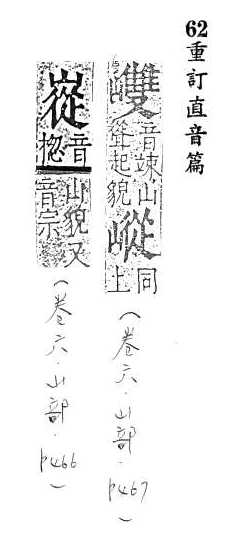 62重訂直音篇
音竦山聳起貌嵷同上（卷六．山部．p467）
嵸音揔山貌又音宗（卷六．山部．p466）